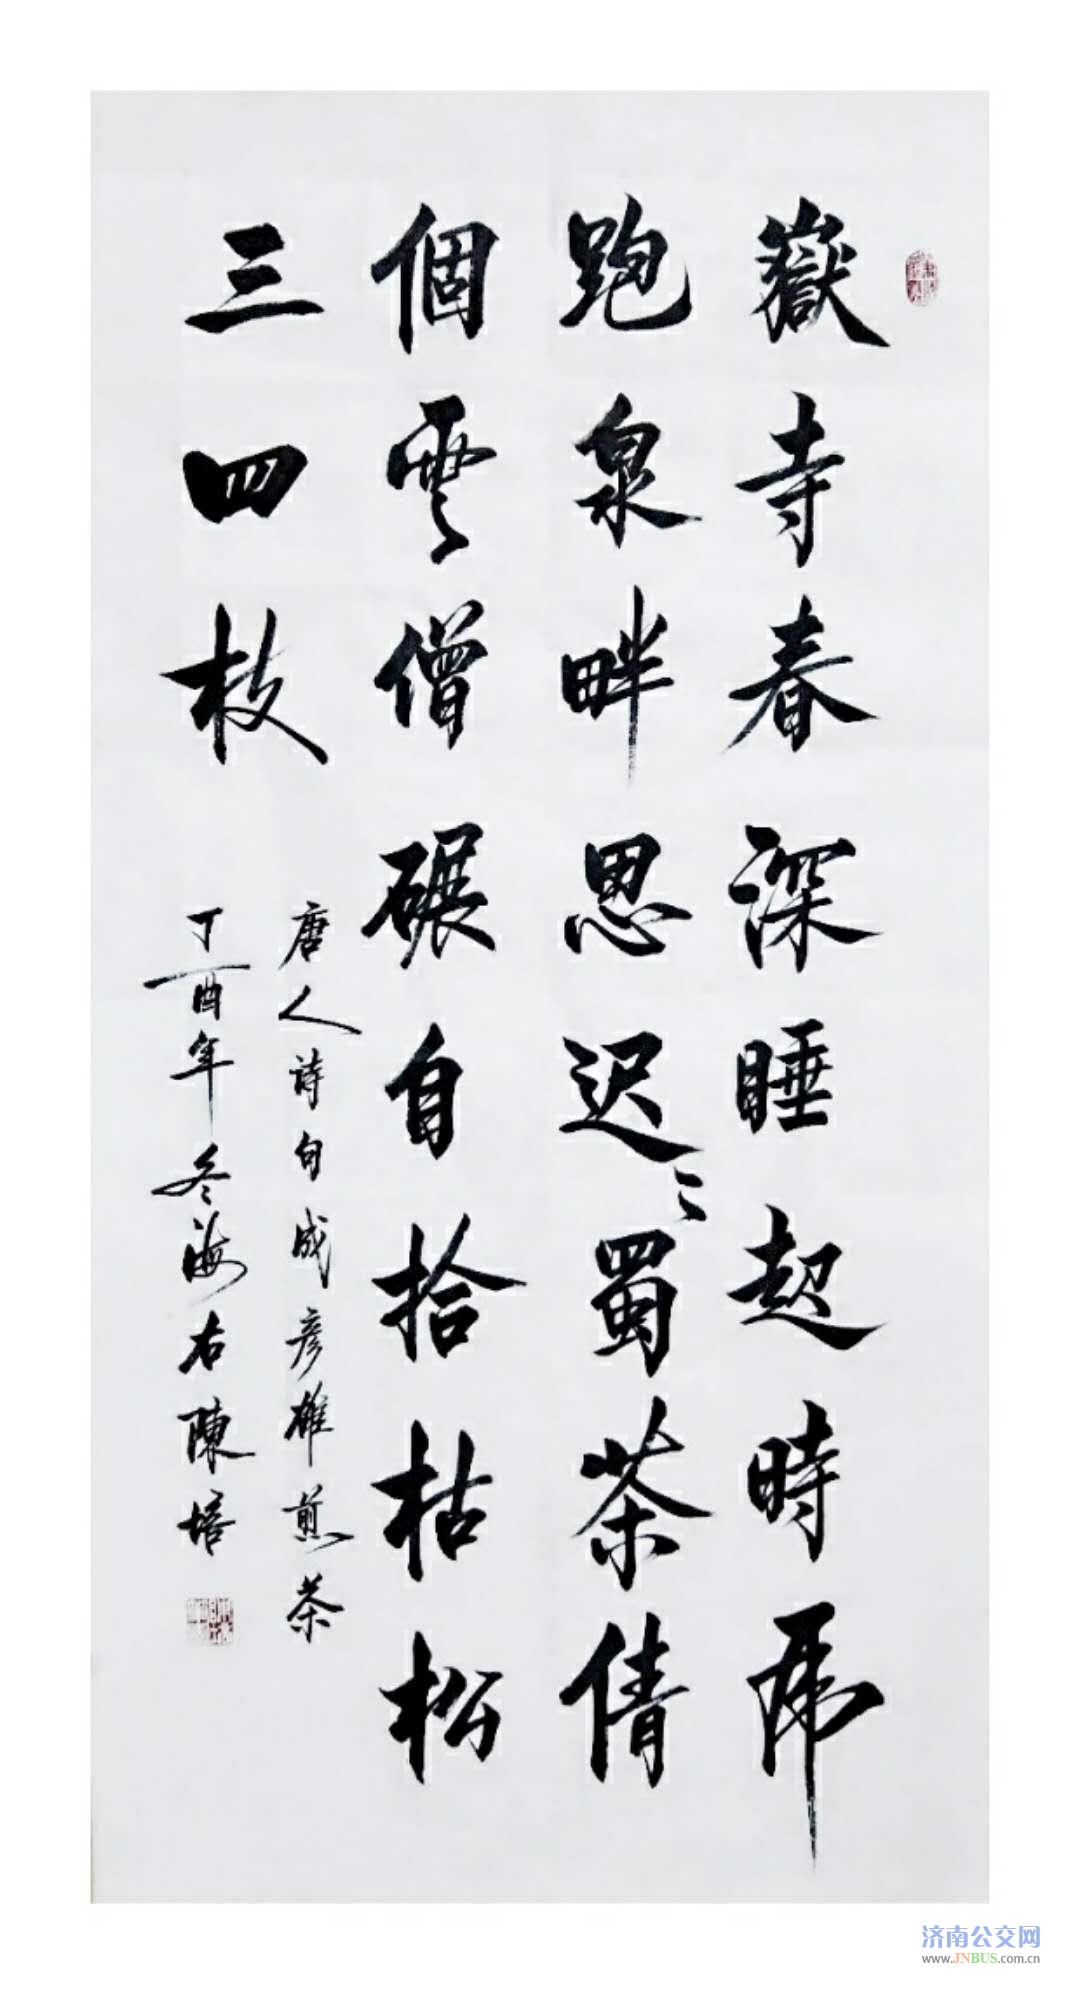 嶽寺春深睡起時虎
跑泉畔思遲〻蜀茶倩
個雲僧碾自拾枯松
三四枝
唐人詩句成彦雄煎茶
丁酉年冬海右陳培
济南公交网
www.JNBUS.com.cn